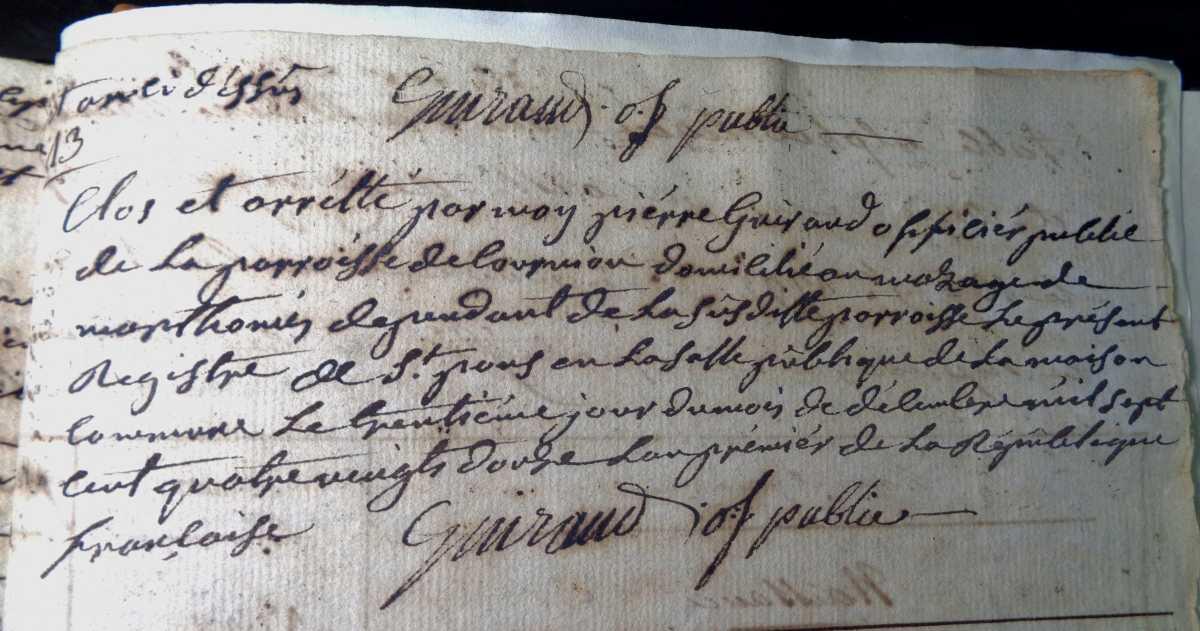 et an ci dissus Guiraud of public
13
Clos et arrétté par moy piérre Guiraud officiér public
de La parroisse de Courniou domicilié au mazage de
marthomis dependant de La susditte parroisse Le présant
Registre de St. pons en La salle publique de La maison
commune Le trentiéme jour du mois de décembre mil sept
cent quatre vingts douze Lan prémiér de La République
françoise Guiraud of public